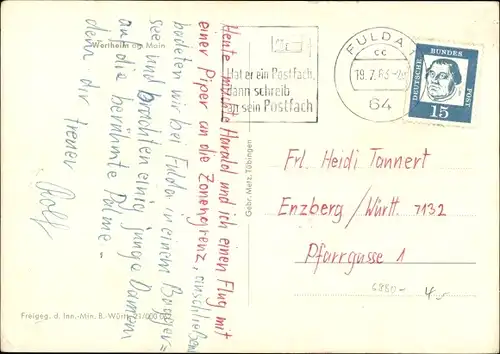 Wertheim am Main
Heute machte Harald und ich einen Flug mit
einer Piper an die Zonengrenze, anschließend
badeten wir bei Fulda in einem Bagger=
see und brachten einig junge Damen
auf die berühmte Palme –
denn dir treuer
Rolf
Freigeg. d. Inn.-Min. B.-Württ.
Gebr. Metz, Tübingen
Hat er ein Postfach,
dann schreib
an sein Postfach
FULDA
cc
19.7.63
64
DEUTSCHE BUNDESPOST
15
Frl. Heidi Tannert
Enzberg/Württ. 7132
Pfarrgasse 1